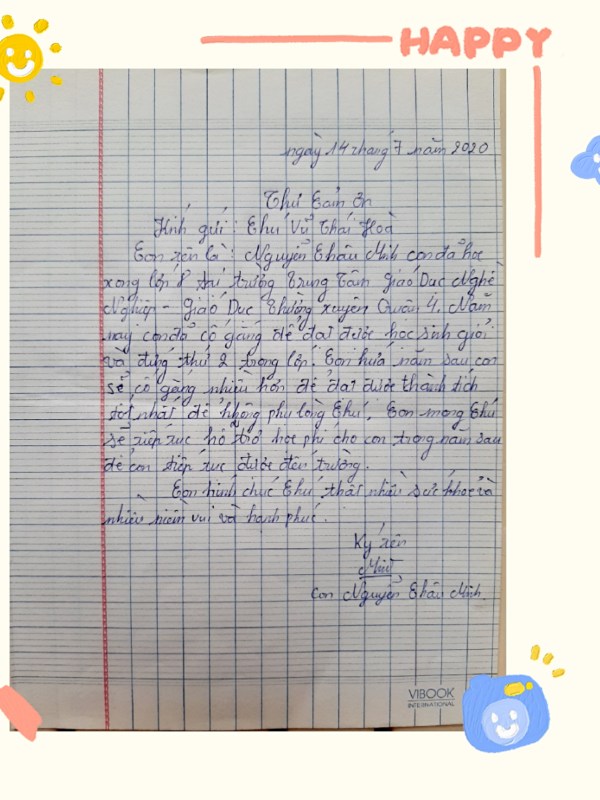 HAPPY
ngày 14 tháng 7 năm 2020
Thư Cảm ơn
Kính gửi : Chú Vũ Thái Hoà
Con tên là : Nguyễn Châu Minh con đã học
xong lớp 8 tại trường Trung Tâm Giáo Dục Nghề
Nghiệp - Giáo Dục Thường xuyên Quận 4. Năm
nay con đã cố gắng để đạt được học sinh giỏi
và đứng thứ 2 trong lớp. Con hứa năm sau con
sẽ cố gắng nhiều hơn để đạt được thành tích
tốt nhất để không phụ lòng Chú. Con mong Chú
sẽ tiếp tục hỗ trợ học phí cho con trong năm sau
để con tiếp tục được đến trường.
Con kính chúc Chú thật nhiều sức khoẻ và
nhiều niềm vui và hạnh phúc.
Ký tên
Minh
Con Nguyễn Châu Minh
VIBOOK
INTERNATIONAL